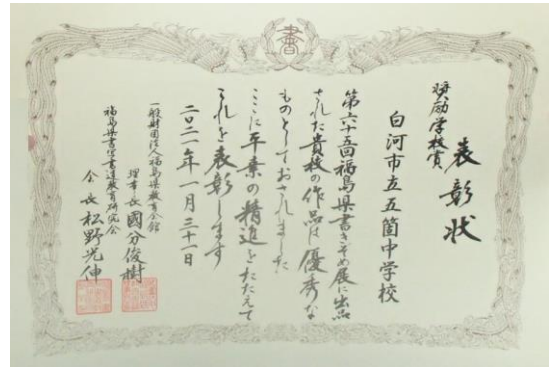 書
表彰状
奨励学校賞
白河市立五箇中学校
第六十五回福島県書きぞめ展に出品
された貴校の作品は優秀な
ものとしておされました
ここに平素の精進をたたえて
これを表彰します
二〇二一年一月三十一日
一般財団法人福島県教育会館
理事長國分俊樹
福島県書写書道教育研究会
会長松野光伸